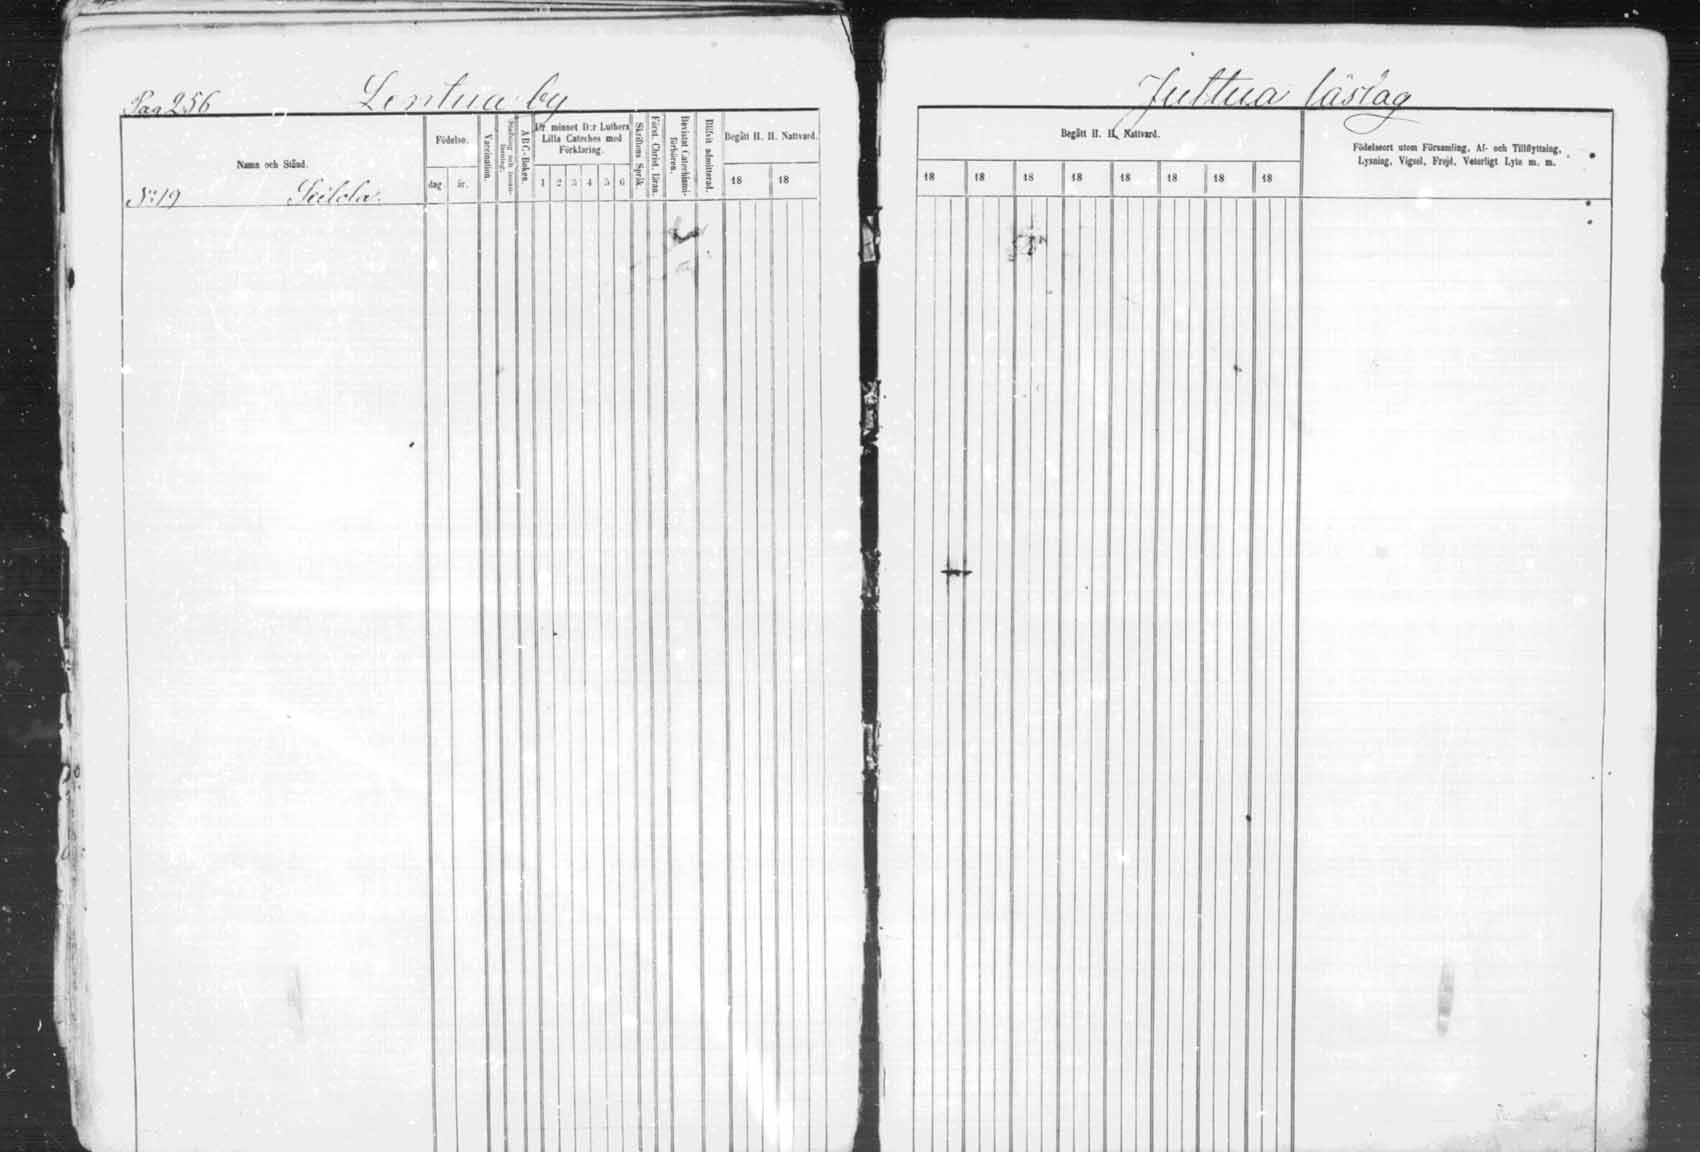 Pag 256
Lentua by
Namn och Stånd.
Födelse.
dag
år.
Vaccination.
ABC-Boken.
Ur minnet D:r Luthers
Lilla Cateches med
Förklaring.
1 2 3 4 5 6
Skriftens Språk.
Först. Christ. läran.
Bevistat Catechismi-
förhören.
Blifvit admitterad.
Begått H. H. Nattvard.
18 18
No 19
Juttua läslag
Begått H. H. Nattvard.
18 18 18 18 18 18 18 18
Födelseort utom Församling, Af- och Tillflyttning,
Lysning, Vigsel, Frejd, Veterligt Lyte m. m.